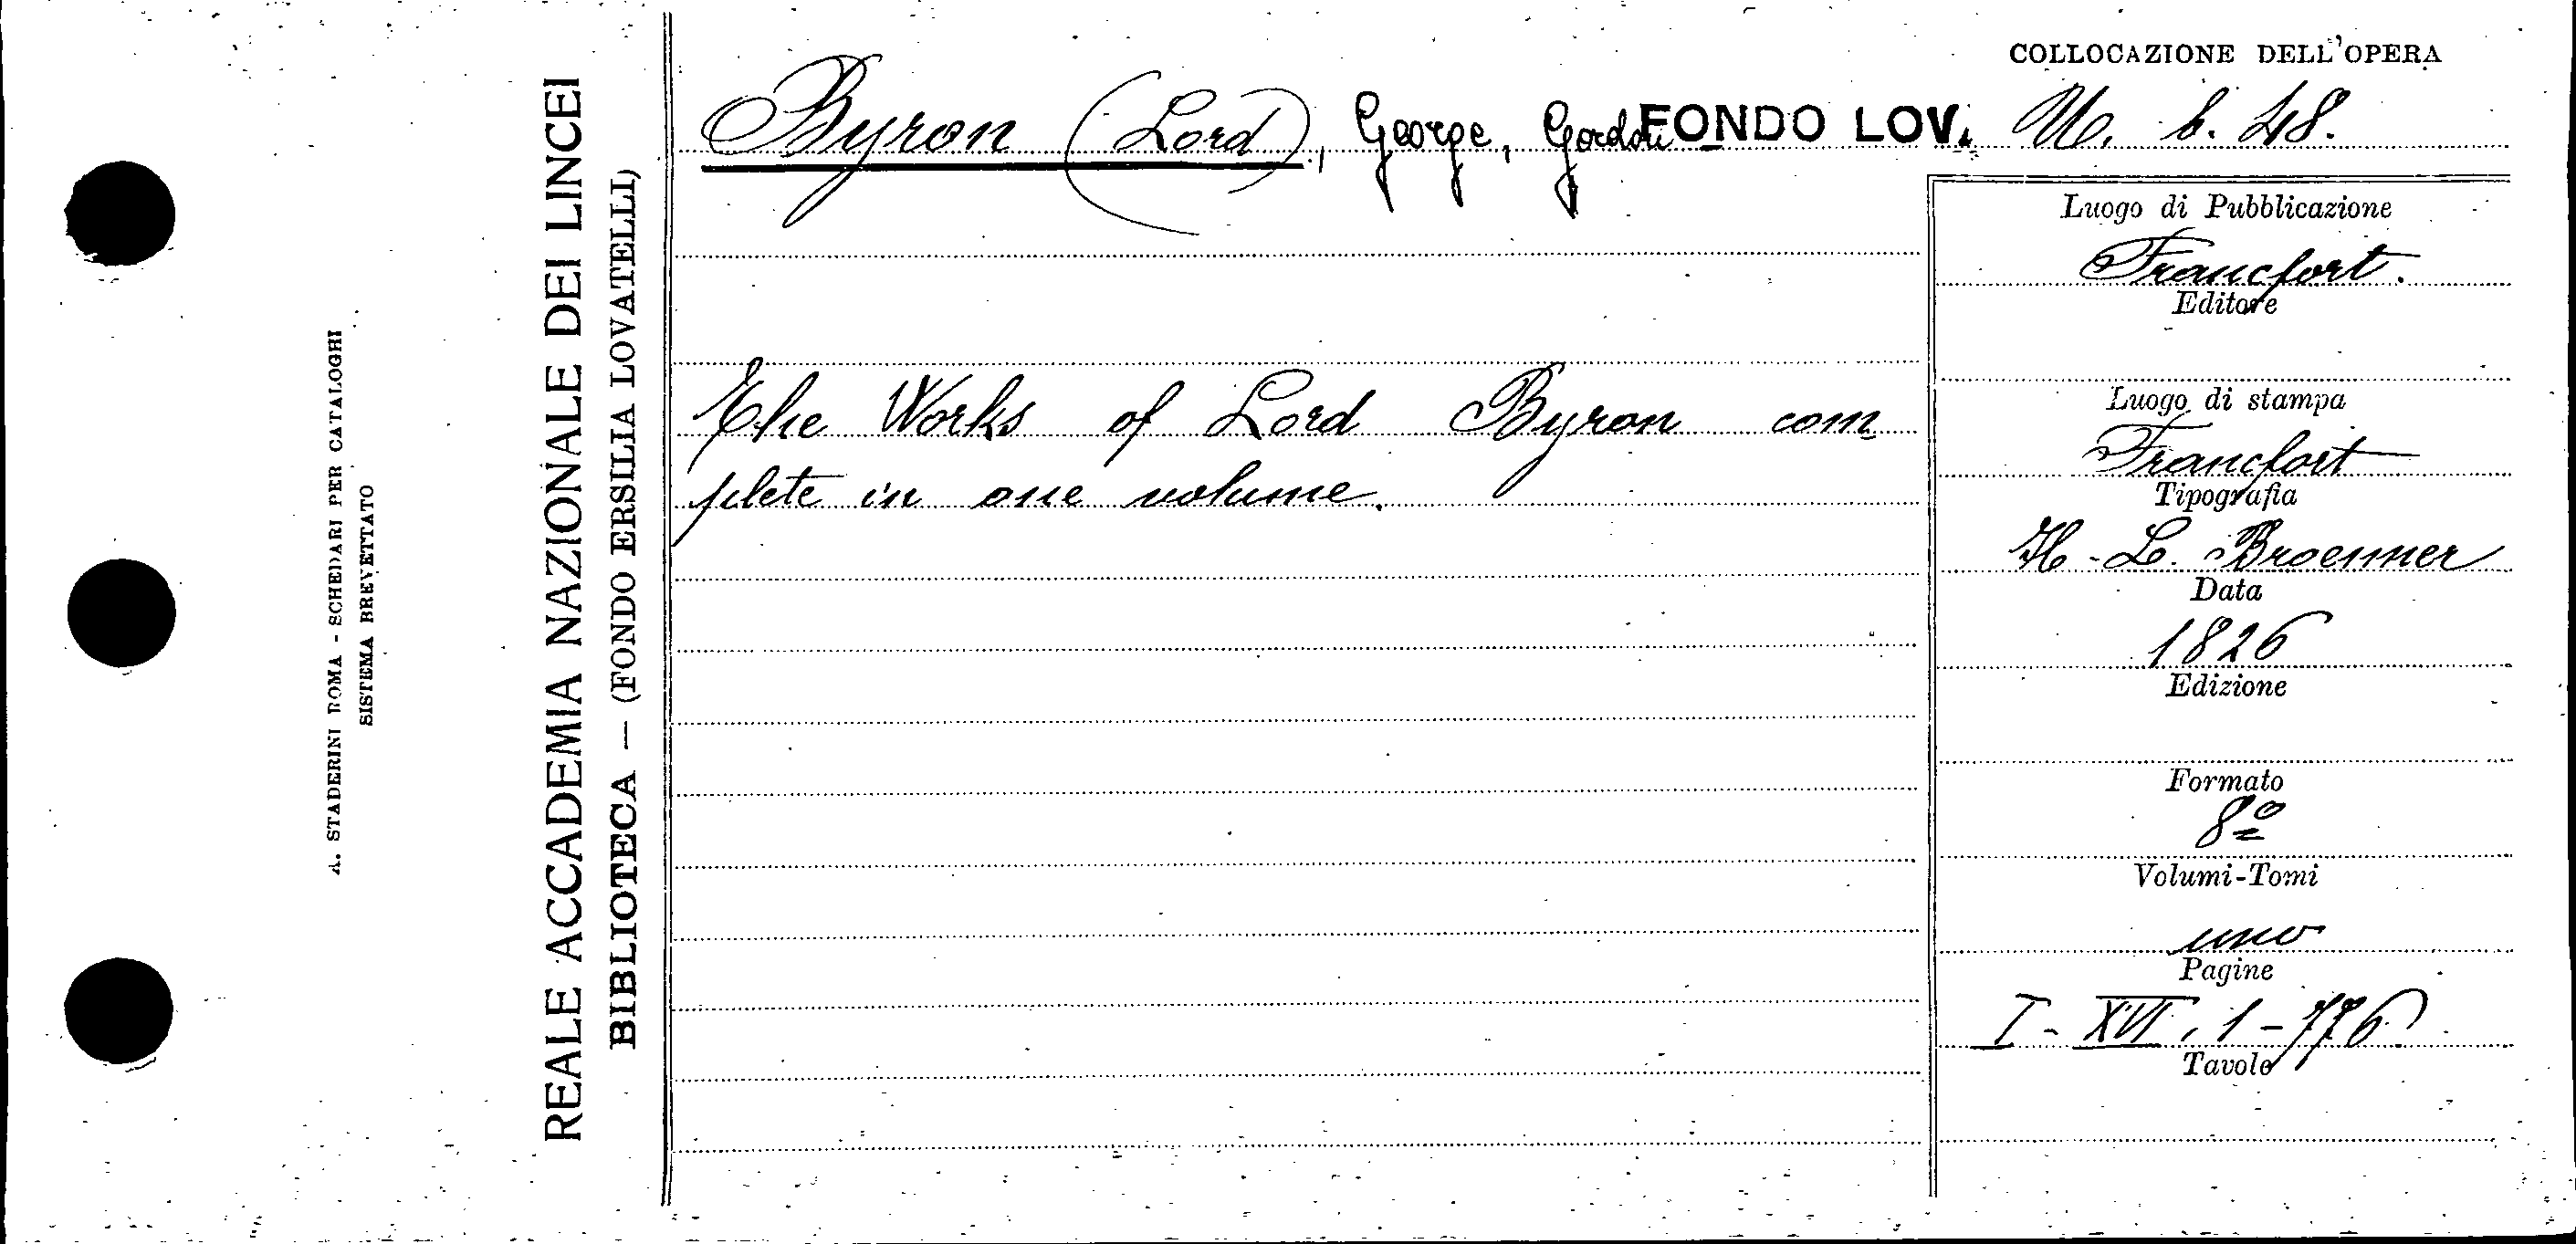 A. STADERINI ROMA - SCHEDARI PER CATALOGHI
SISTEMA BREVETTATO
REALE ACCADEMIA NAZIONALE DEI LINCEI
BIBLIOTECA — (FONDO ERSILIA LOVATELLI)
Byron (Lord), George, Gordon
The Works of Lord Byron com
plete in one volume.
COLLOCAZIONE DELL'OPERA
FONDO LOV. b. 48.
Luogo di Pubblicazione
Francfort.
Editore
Luogo di stampa
Francfort
Tipografia
H. L. Broenner
Data
1826
Edizione
Formato
8º
Volumi-Tomi
uno
Pagine
I - XVI, 1 - 776
Tavole